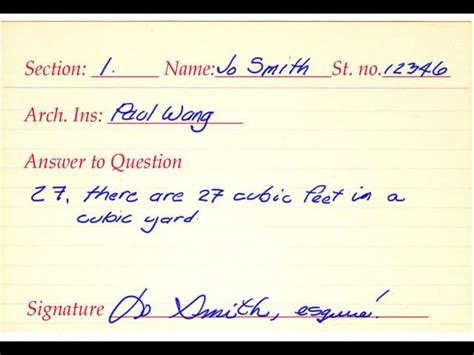 Section: 1. Name: Jo Smith St. no. 12346
Arch. Ins: Paul Wang
Answer to Question
27, there are 27 cubic feet in a
cubic yard.
Signature Jo Smith, esquire!